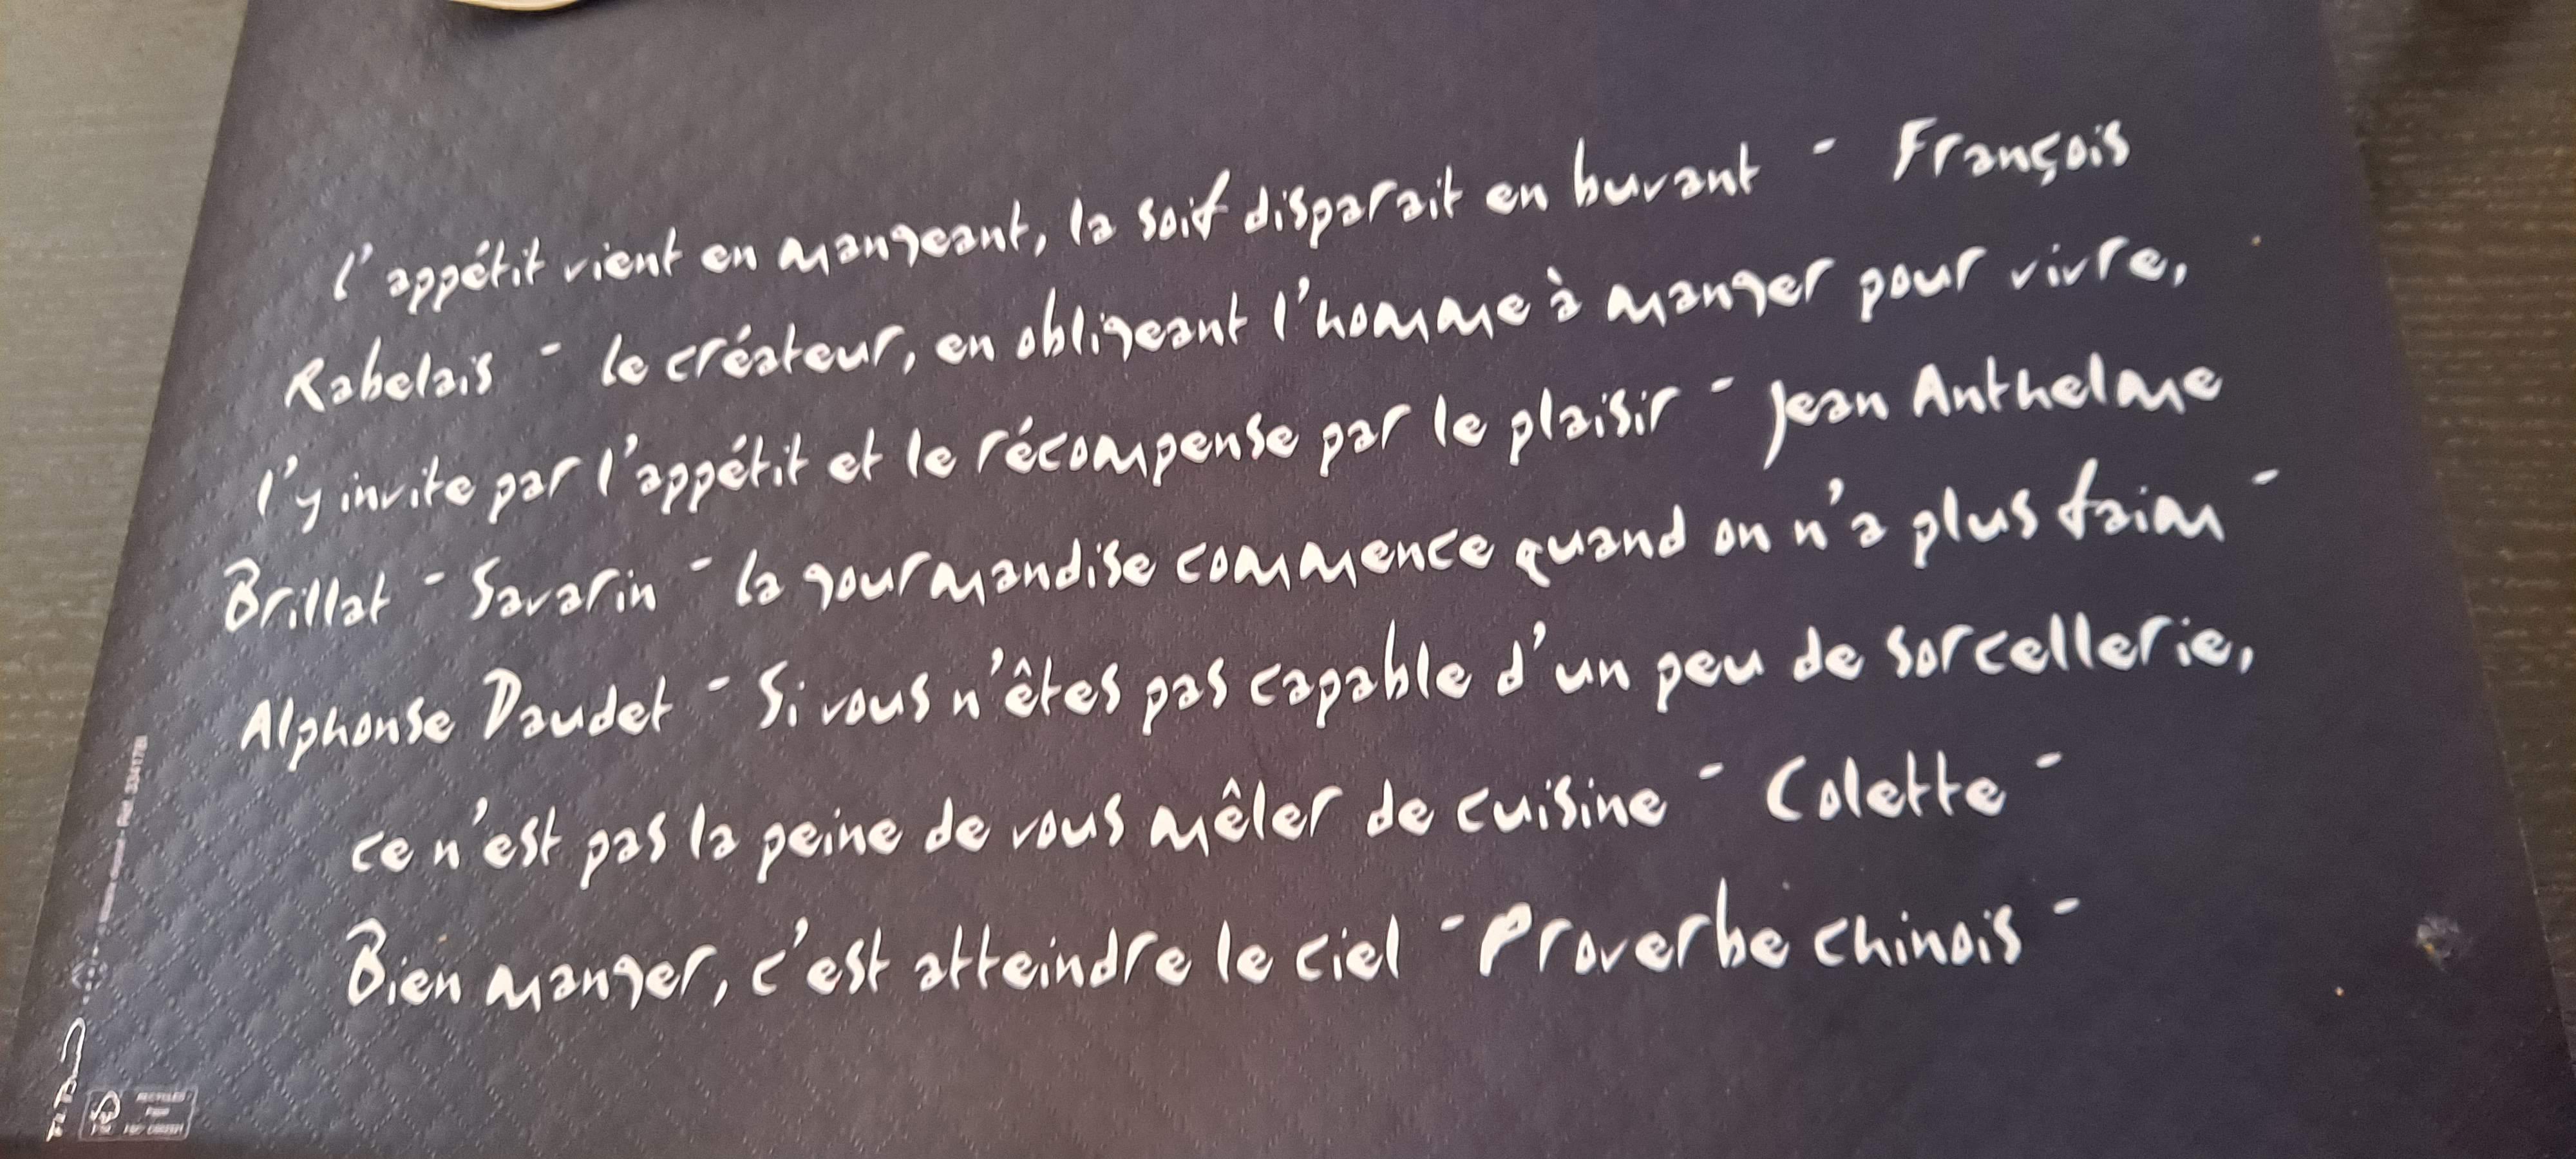 l'appétit vient en mangeant, la soif disparait en buvant - François
Rabelais - le créateur, en obligeant l'homme à manger pour vivre,
l'y invite par l'appétit et le récompense par le plaisir - Jean Anthelme
Brillat - Savarin - la gourmandise commence quand on n'a plus faim -
Alphonse Daudet - Si vous n'êtes pas capable d'un peu de sorcellerie,
ce n'est pas la peine de vous mêler de cuisine - Colette -
Bien manger, c'est atteindre le ciel - Proverbe chinois -
RECYCLED